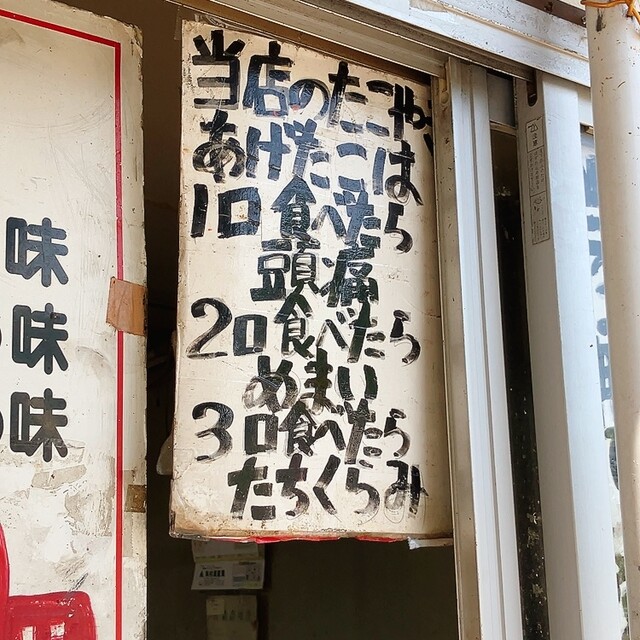 当店のたこや、
あげたこは
1口食べたら
頭痛
2口食べたら
めまい
3口食べたら
たちくらみ
味
味
味